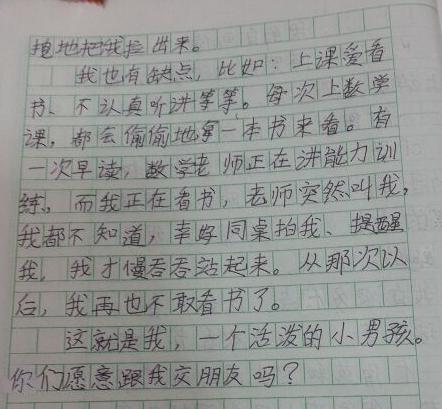 拽地把我拉出来。
我也有缺点，比如：上课爱看
书、不认真听讲等等。每次上数学
课，都会偷偷地拿一本书来看。有
一次早读，数学老师正在讲能力训
练，而我正在看书，老师突然叫我，
我都不知道，幸好同桌拍我、提醒
我，我才慢吞吞站起来。从那次以
后，我再也不敢看书了。
这就是我，一个活泼的小男孩。
你们愿意跟我交朋友吗？